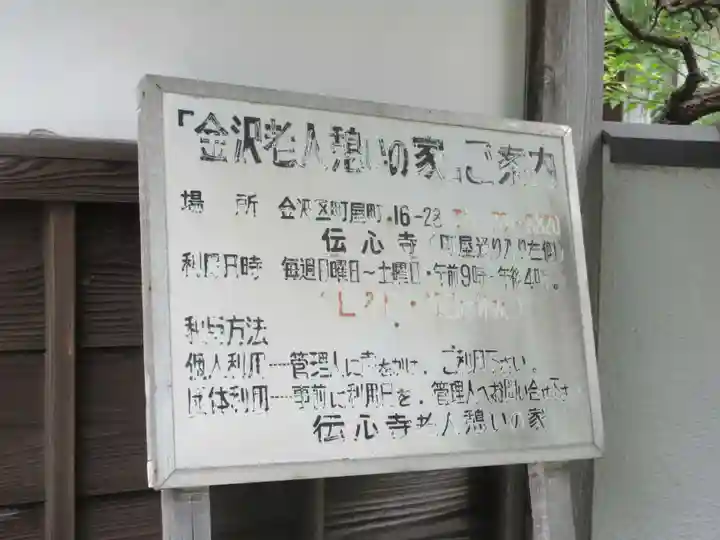 「金沢老人憩いの家」ご案内
場所 金沢区町屋町.16-28
伝心寺(町屋通り入り左側)
利用日時 毎週日曜日~土曜日・午前9時~午後4時。
利用方法
個人利用……管理人に声をかけ、ご利用下さい。
団体利用……事前に利用日を、管理人へお問い合せ下さ
伝心寺老人憩いの家